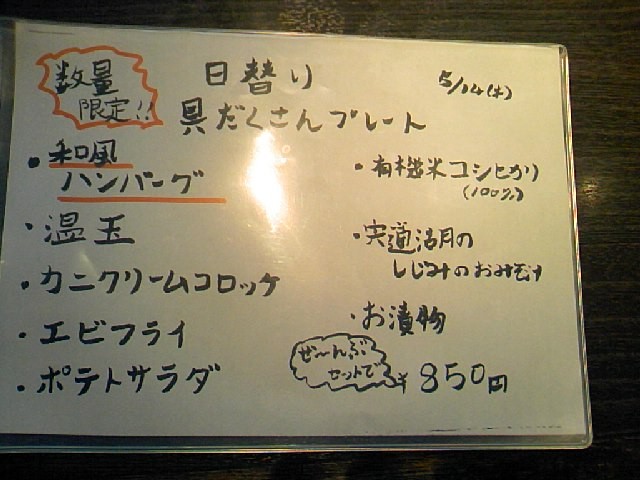 数量
限定!!
日替り
具だくさんプレート
5/14(木)
・和風
ハンバーグ
・温玉
・カニクリームコロッケ
・エビフライ
・ポテトサラダ
・有機米コシヒカリ
(100%)
・宍道湖の
しじみのおみそ汁
・お漬物
ぜ〜んぶ
セットで
¥850円